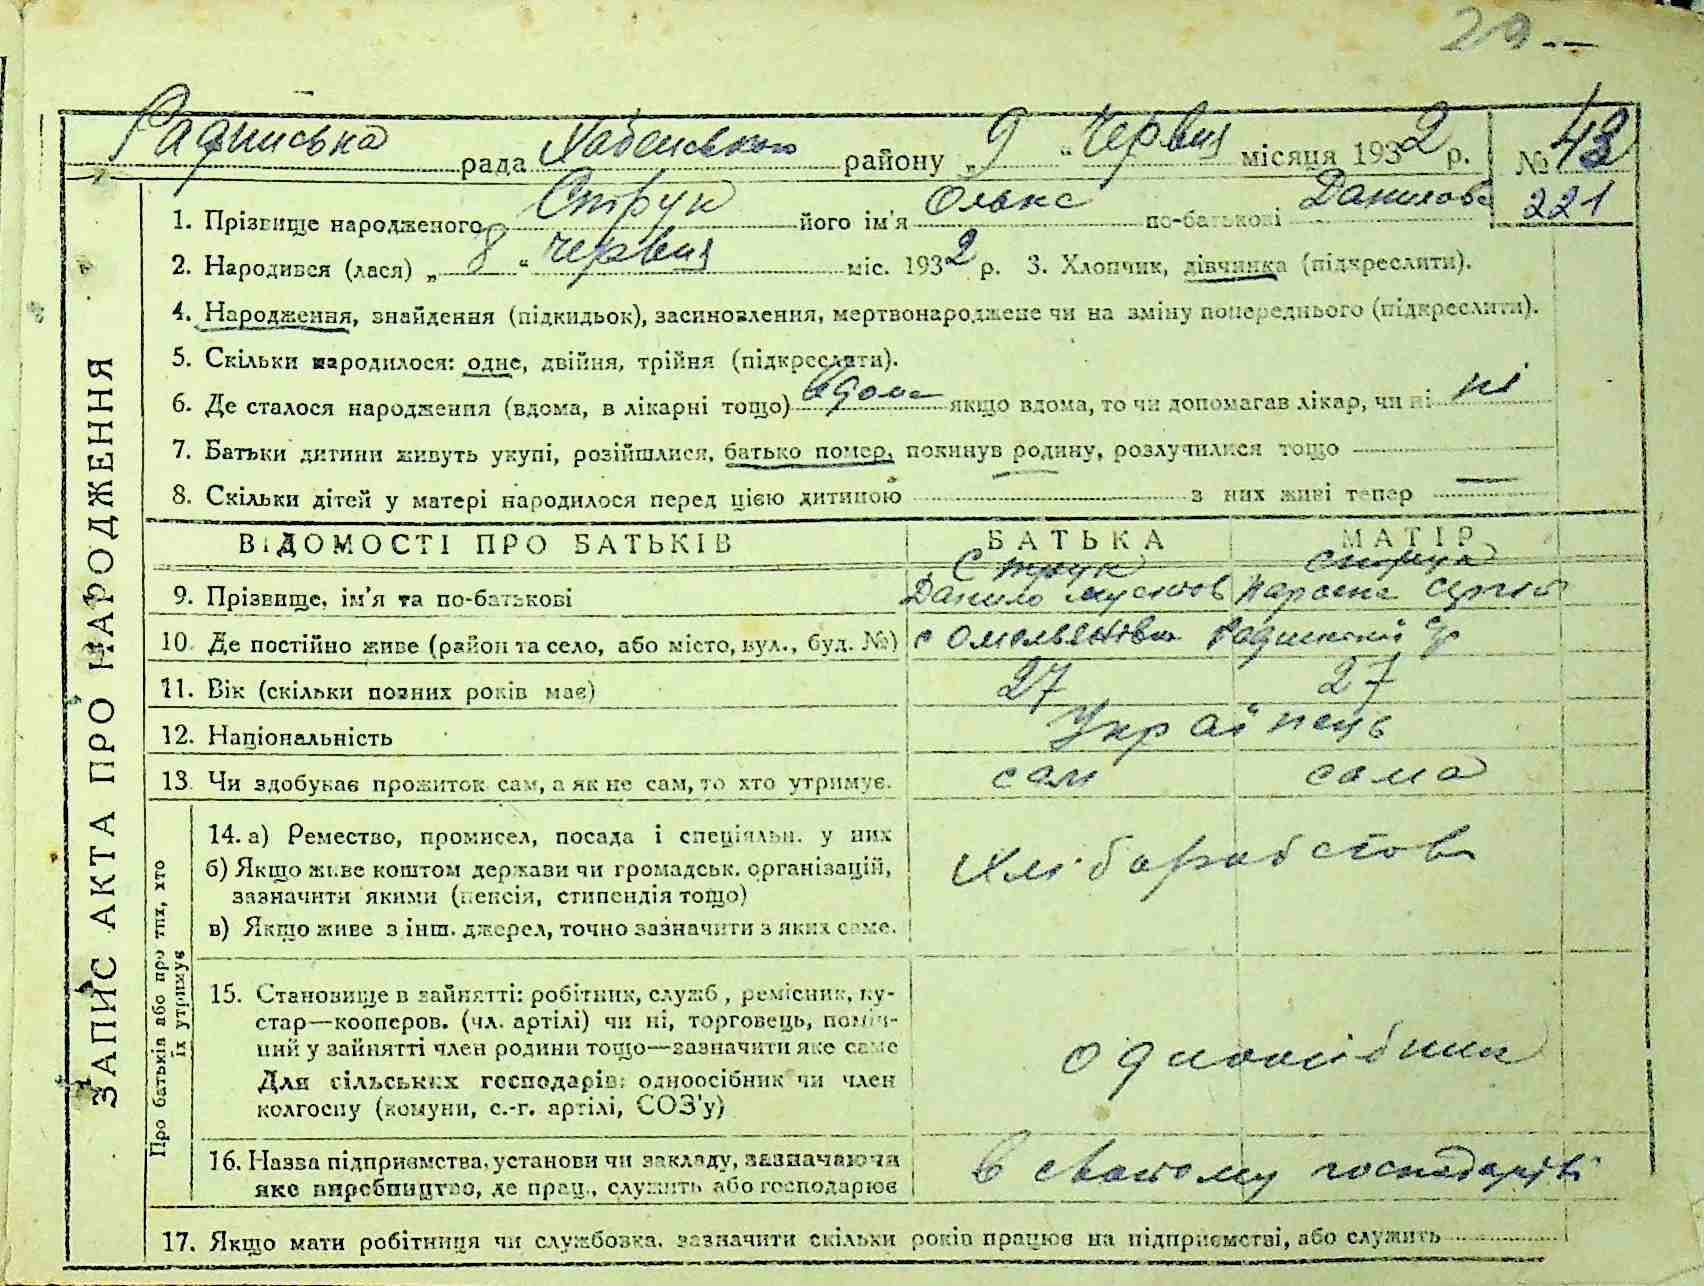 29 —
Радинська рада Хабенського району „ 9 “ Червня місяця 1932 р. № 43
1. Прізвище народженого Струк його ім'я Олькс по-батькові Данилова 221
2. Народився (лася) „ 8 “ червня міс. 1932 р. 3. Хлопчик, дівчинка (підкреслити).
4. Народження, знайдення (підкидьок), засиновлення, мертвонароджене чи на зміну попереднього (підкреслити).
5. Скільки народилося: одне, двійня, трійня (підкреслити).
6. Де сталося народження (вдома, в лікарні тощо) вдома якщо вдома, то чи допомагав лікар, чи ні ні
7. Батьки дитини живуть укупі, розійшлися, батько помер, покинув родину, розлучилися тощо
8. Скільки дітей у матері народилося перед цією дитиною — з них живі тепер —
ВІДОМОСТІ ПРО БАТЬКІВ БАТЬКА МАТІР
Струк Струк
9. Прізвище, ім'я та по-батькові Данило Параска
10. Де постійно живе (район та село, або місто, вул., буд. №) с Омельянівка Радинської
11. Вік (скільки повних років має) 27 27
12. Національність Українець
13. Чи здобуває прожиток сам, а як не сам, то хто утримує. сам сама
14. а) Ремество, промисел, посада і спеціяльн. у них
б) Якщо живе коштом держави чи громадськ. організацій,
зазначити якими (пенсія, стипендія тощо) Хліборобство
в) Якщо живе з інш. джерел, точно зазначити з яких саме.
15. Становище в зайнятті: робітник, служб, ремісник, ку-
стар—кооперов. (чл. артілі) чи ні, торговець, поміч-
ний у зайнятті член родини тощо—зазначити яке саме одноосібник
Для сільських господарів: одноосібник чи член
колгоспу (комуни, с.-г. артілі, СОЗ'у)
16. Назва підприємства, установи чи закладу, зазначаючи
яке виробництво, де прац., служить або господарює в своєму господарстві
17. Якщо мати робітниця чи службовка, зазначити скільки років працює на підприємстві, або служить
ЗАПИС АКТА ПРО НАРОДЖЕННЯ
Про батьків або про тих, хто
їх утримує